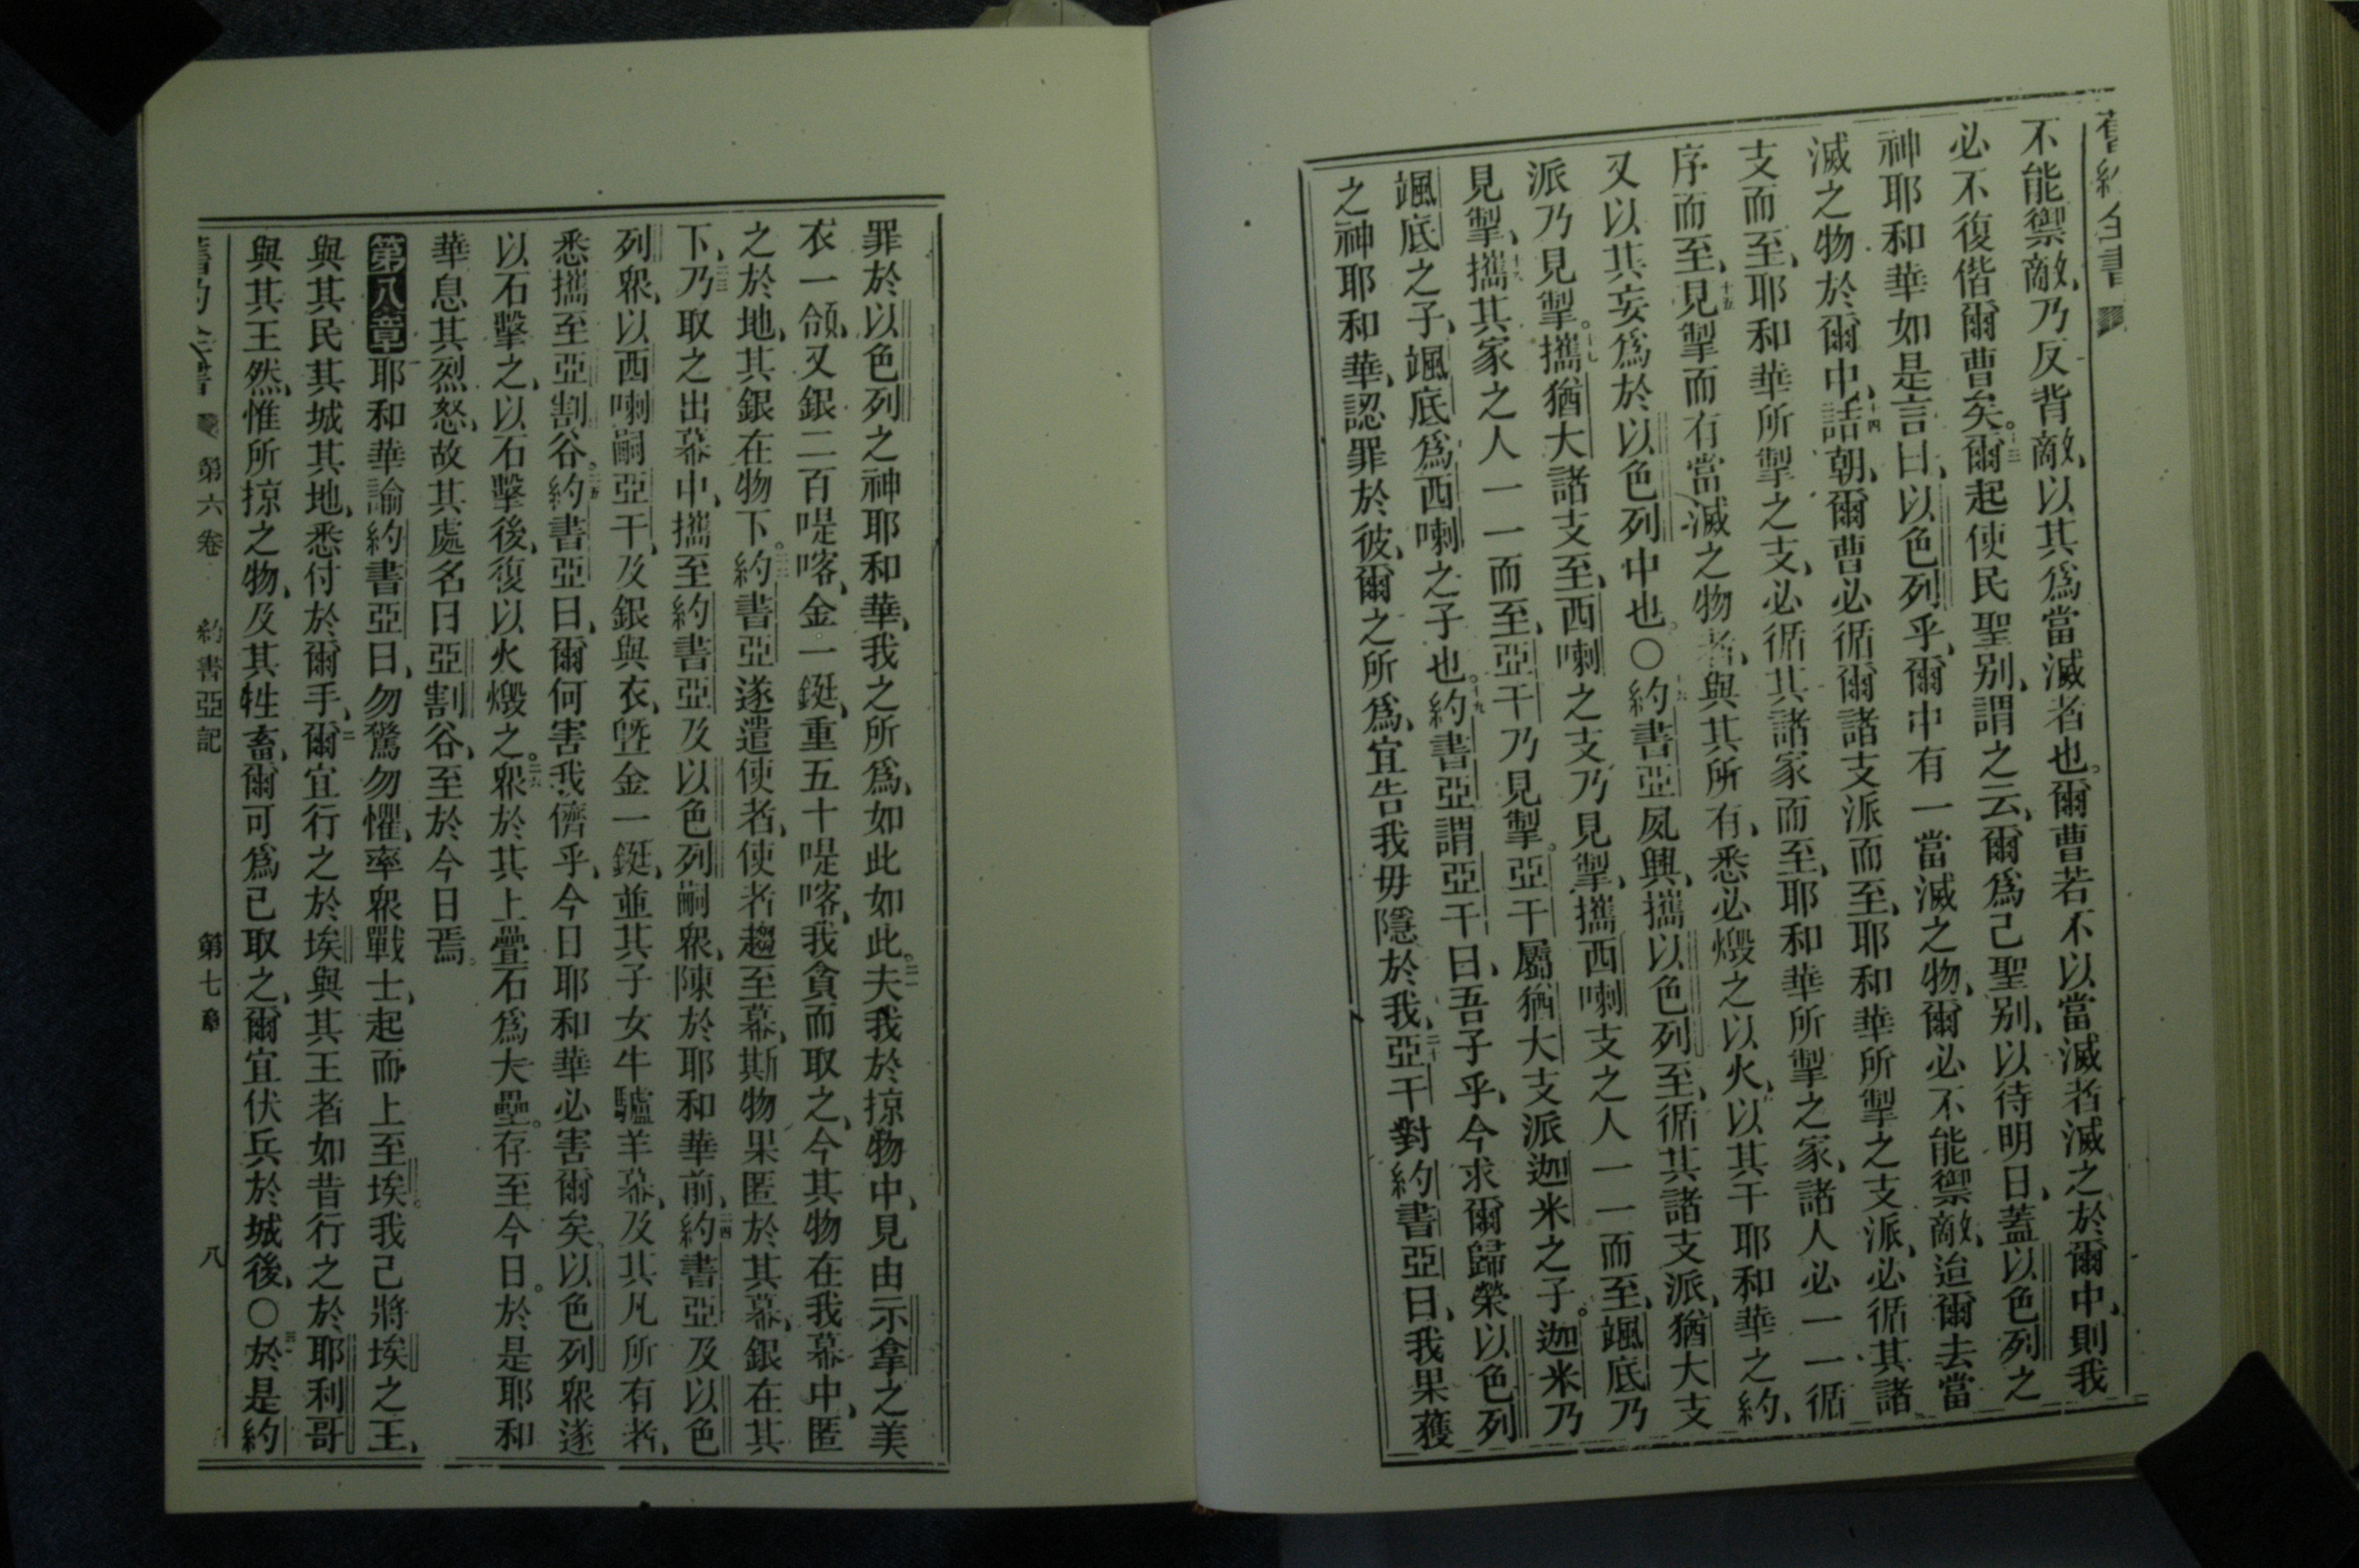 舊約全書
不能禦敵、乃反背敵、以其爲當滅者也。爾曹若不以當滅者滅之於爾中、則我
必不復偕爾曹矣。十三爾起使民聖別、謂之云、爾爲己聖別、以待明日、蓋以色列之
神耶和華如是言曰、以色列乎、爾中有一當滅之物、爾必不能禦敵、迨爾去當
滅之物於爾中、十四詰朝、爾曹必循爾諸支派而至、耶和華所掣之支派、必循其諸
支而至、耶和華所掣之支、必循其諸家而至、耶和華所掣之家、諸人必一一循
序而至、十五見掣而有當滅之物者、與其所有、悉必燬之以火、以其干耶和華之約、
又以其妄爲於以色列中也。○十六約書亞夙興、攜以色列至、循其諸支派、猶大支
派乃見掣。十七攜猶大諸支至、西喇之支乃見掣、攜西喇支之人一一而至、颯底乃
見掣、十八攜其家之人一一而至、亞干乃見掣。亞干屬猶大支派迦米之子。迦米乃
颯底之子、颯底爲西喇之子也。十九約書亞謂亞干曰、吾子乎、今求爾歸榮以色列
之神耶和華、認罪於彼、爾之所爲、宜告我毋隱於我、二十亞干對約書亞曰、我果獲
罪於以色列之神耶和華、我之所爲、如此如此。二一夫我於掠物中、見由示拿之美
衣一領、又銀二百㖷喀、金一鋌、重五十㖷喀、我貪而取之、今其物在我幕中、匿
之於地、其銀在物下。二二約書亞遂遣使者、使者趨至幕、斯物果匿於其幕、銀在其
下、二三乃取之出幕中、攜至約書亞及以色列嗣衆、陳於耶和華前、二四約書亞及以色
列衆、以西喇嗣亞干、及銀與衣、曁金一鋌、並其子女牛驢羊幕、及其凡所有者、
悉攜至亞割谷。二五約書亞曰、爾何害我儕乎、今日耶和華必害爾矣。以色列衆遂
以石擊之、以石擊後、復以火燬之。二六衆於其上疊石爲大壘。存至今日。於是耶和
華息其烈怒、故其處名曰亞割谷、至於今日焉。
第八章 耶和華諭約書亞曰、勿驚勿懼、率衆戰士、起而上至埃。我己將埃之王、
與其民其城其地、悉付於爾手、二爾宜行之於埃與其王者如昔行之於耶利哥
與其王然、惟所掠之物、及其牲畜、爾可爲己取之、爾宜伏兵於城後、○三於是約
舊約全書 第六卷 約書亞記 第七章 八